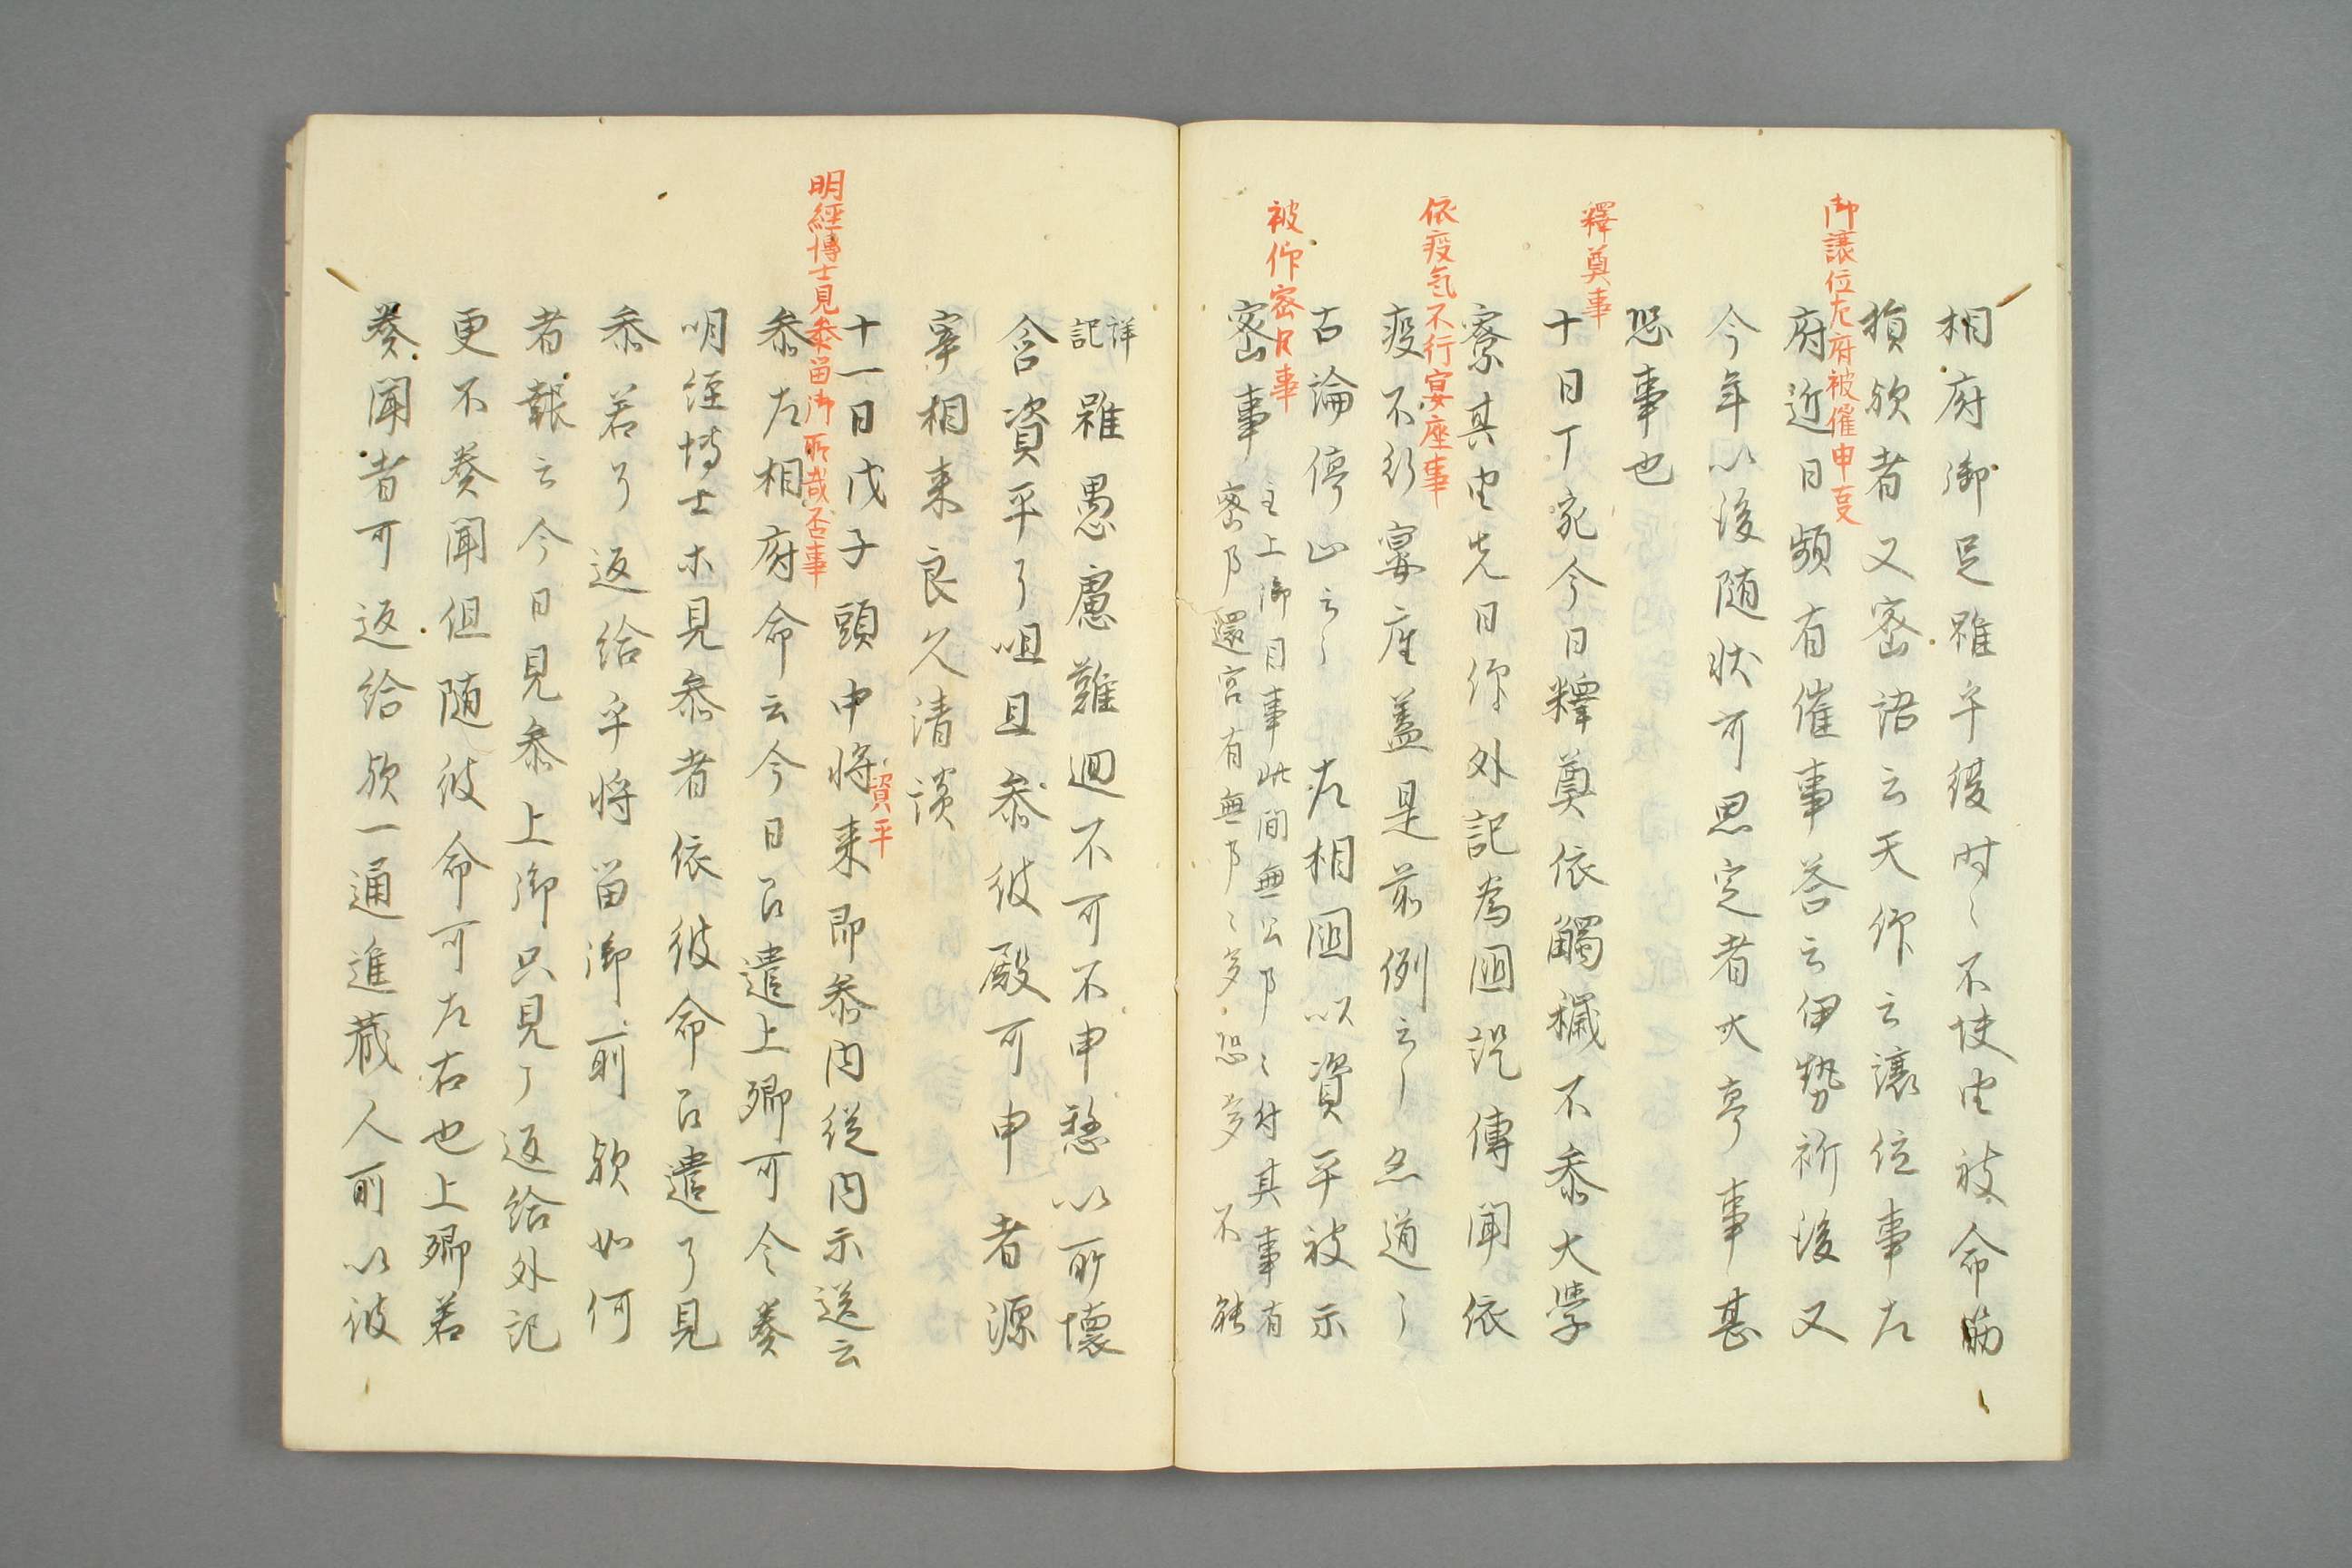 御讓位左府被催申事
釋奠事
依疫氣不行宴座事
被仰密々事
相府御足雖平復時々不快由被命筋
損歟者又密語云天仰云讓位事左
府近日頻有催事答云伊勢祈後又
今年以後随状可思定者大亭事甚
恐事也
十日丁亥今日釋奠依觸穢不參大學
寮其由先日仰外記為國説傳聞依
疫不行宴座蓋是前例云々忽道々
古論停止云々 左相國以資平被示
密事
主上御目事此間無公事々付其事有
密事還宮有無事々多恐多 不能
詳
記
雖愚慮難迴不可不申愁以所懐
含資平了咀且參彼殿可申者源
宰相来良久清談
明經博士見參留御所哉否事
十一日戊子頭中将来即參内従内示送云
資平
參左相府命云今日召遣上卿可令奏
明経博士等見參者依彼命召遣了見
參若了返給乎将留御前歟如何
者報云今日見參上御只見了返給外記
更不奏聞但随彼命可左右也上卿若
奏聞者可返給歟一通進蔵人所以彼